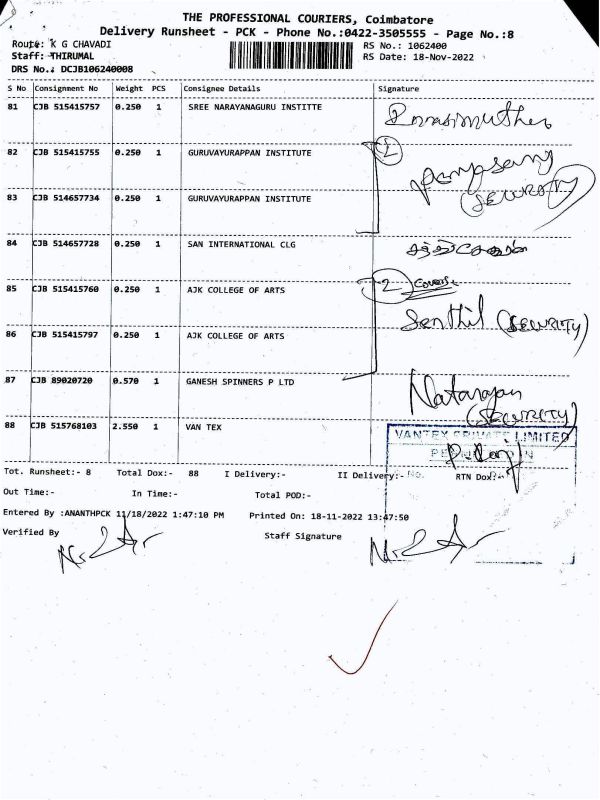 THE PROFESSIONAL COURIERS, Coimbatore
Delivery Runsheet - PCK - Phone No.:0422-3505555 - Page No.:8
Route: K G CHAVADI
RS No.: 1062400
Staff: THIRUMAL
RS Date: 18-Nov-2022
DRS No.: DCJB106240008
S No Consignment No Weight PCS Consignee Details Signature
81 CJB 515415757 0.250 1 SREE NARAYANAGURU INSTITTE
82 CJB 515415755 0.250 1 GURUVAYURAPPAN INSTITUTE 2
(SECURITY)
83 CJB 514657734 0.250 1 GURUVAYURAPPAN INSTITUTE
84 CJB 514657728 0.250 1 SAN INTERNATIONAL CLG
85 CJB 515415760 0.250 1 AJK COLLEGE OF ARTS 2
Senthil (SECURITY)
86 CJB 515415797 0.250 1 AJK COLLEGE OF ARTS
87 CJB 89020720 0.570 1 GANESH SPINNERS P LTD Natarajan
(SECURITY)
88 CJB 515768103 2.550 1 VAN TEX
VANTEX PRIVATE LIMITED
Tot. Runsheet:- 8 Total Dox:- 88 I Delivery:- II Delivery:- RTN Dox:-
Out Time:- In Time:- Total POD:-
Entered By :ANANTHPCK 11/18/2022 1:47:10 PM Printed On: 18-11-2022 13:47:50
Verified By Staff Signature